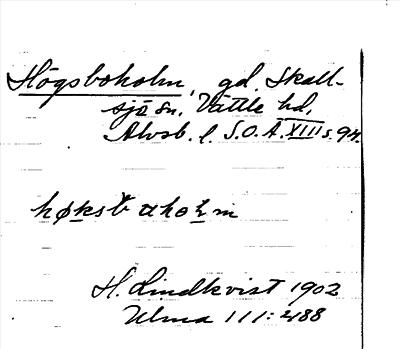 Högsboholm, gd. Skall-
sjö sn. Vättle hd,
Älvsb. l. S.O.Ä. XIII s. 94.
høksbaholm
H. Lindkvist 1902
Ulma 111:488